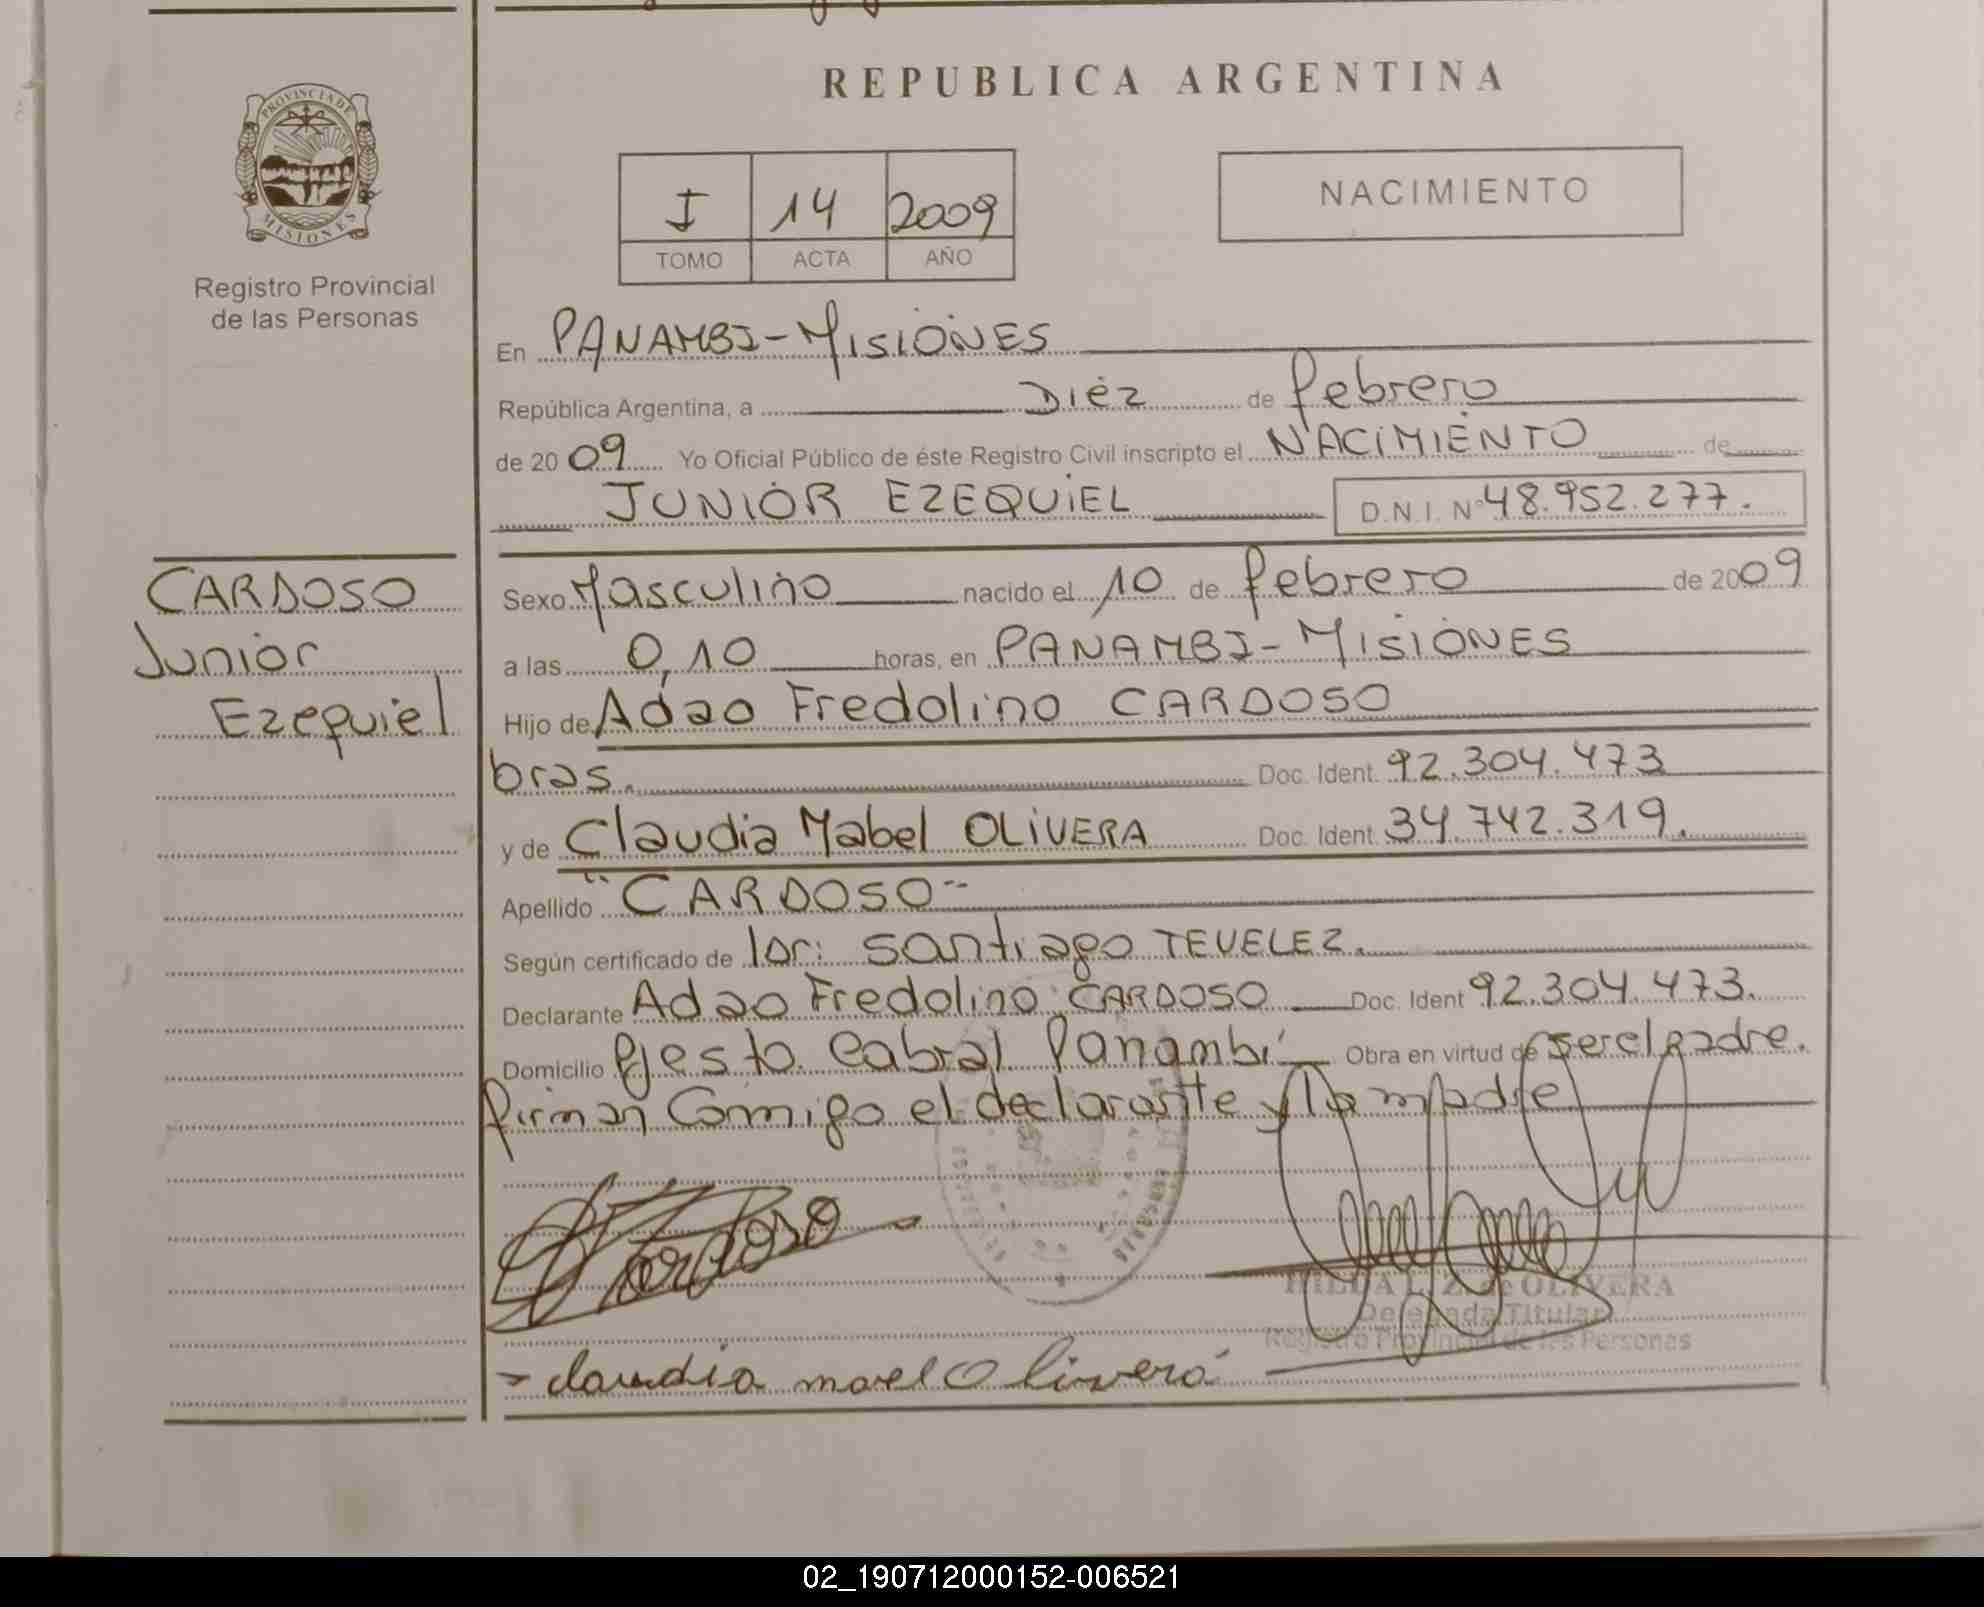 REPUBLICA ARGENTINA
PROVINCIA DE
MISIONES
Registro Provincial
de las Personas
I 14 2009
TOMO ACTA AÑO
NACIMIENTO
En PANAMBI-MISIONES
República Argentina, a Diez de febrero
de 2009 Yo Oficial Público de éste Registro Civil inscripto el NACIMIENTO de
JUNIOR EZEQUIEL D.N.I. Nº 48.952.277.
CARDOSO
Junior
Ezequiel
Sexo Masculino nacido el 10 de febrero de 2009
a las 0,10 horas, en PANAMBI-MISIONES
Hijo de Adao Fredolino CARDOSO
bras. Doc. Ident. 92.304.473
y de Claudia Mabel OLIVERA Doc. Ident. 34.742.319.
Apellido "CARDOSO"
Según certificado de Santiago TEVELEZ.
Declarante Adao Fredolino CARDOSO Doc. Ident 92.304.473.
Domicilio Pje sto. Cabral Panambí Obra en virtud de ser el padre.
firman Conmigo el declarante y la madre
Cardoso
HILDA L. Z. de OLIVERA
Delegada Titular
Registro Provincial de las Personas
claudia mavel Olivera
02_190712000152-006521